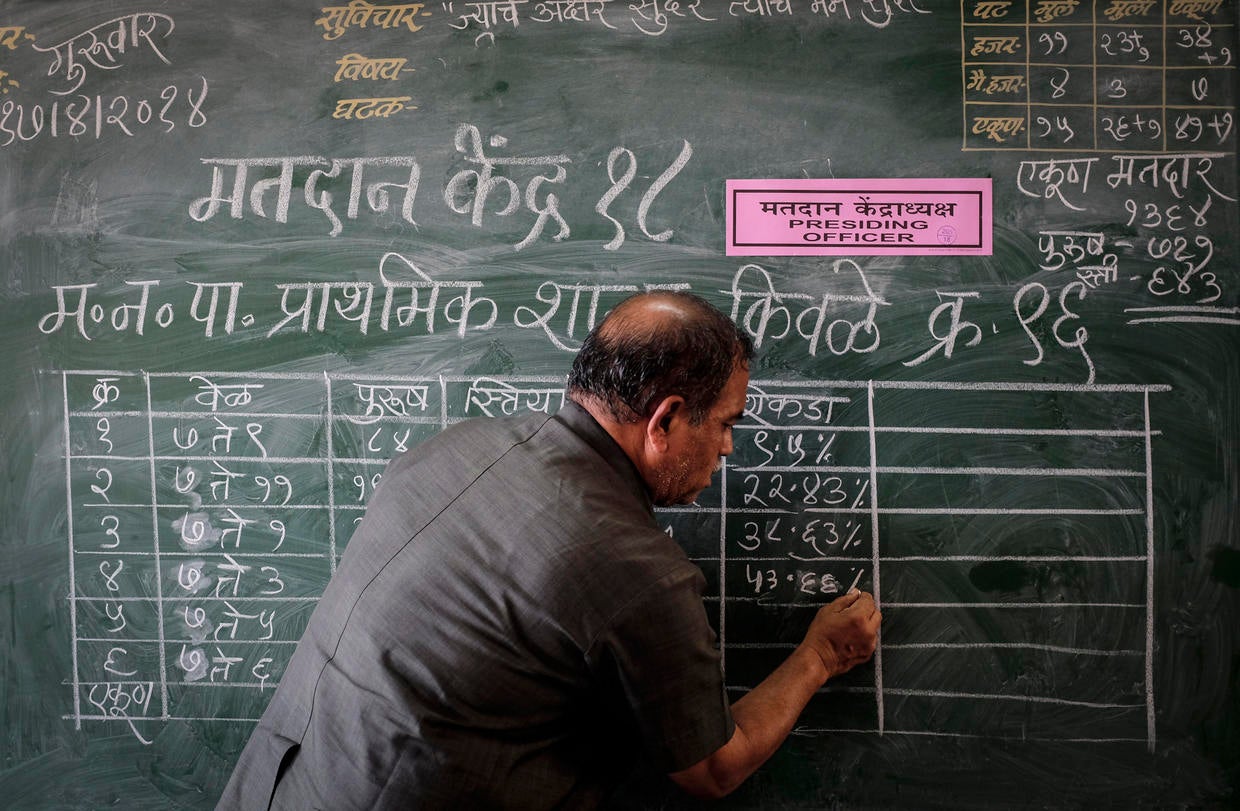 गुरूवार
१७/४/२०१४
सुविचार- "ज्याचे अक्षर सुंदर त्याचे मन
विषय-
घटक-
पट मुले मुली एकूण
हजर- ११ २३+१ ३४+१
गै.हजर- ४ ३ ७
एकूण- १५ २६+१ ४१+१
मतदान केंद्र १८
मतदान केंद्राध्यक्ष
PRESIDING
OFFICER
एकूण मतदार
१३६४
पुरूष - ७२१
स्त्री - ६४३
म.न.पा. प्राथमिक किवळे क्र. ९६
क्र वेळ पुरूष स्त्रिया शेकडा
१ ७ ते ९ ८४ ९.५%
२ ७ ते ११ २२.४३%
३ ७ ते १ ३८.६३%
४ ७ ते ३ ५३.६६%
५ ७ ते ५
६ ७ ते ६
एकूण